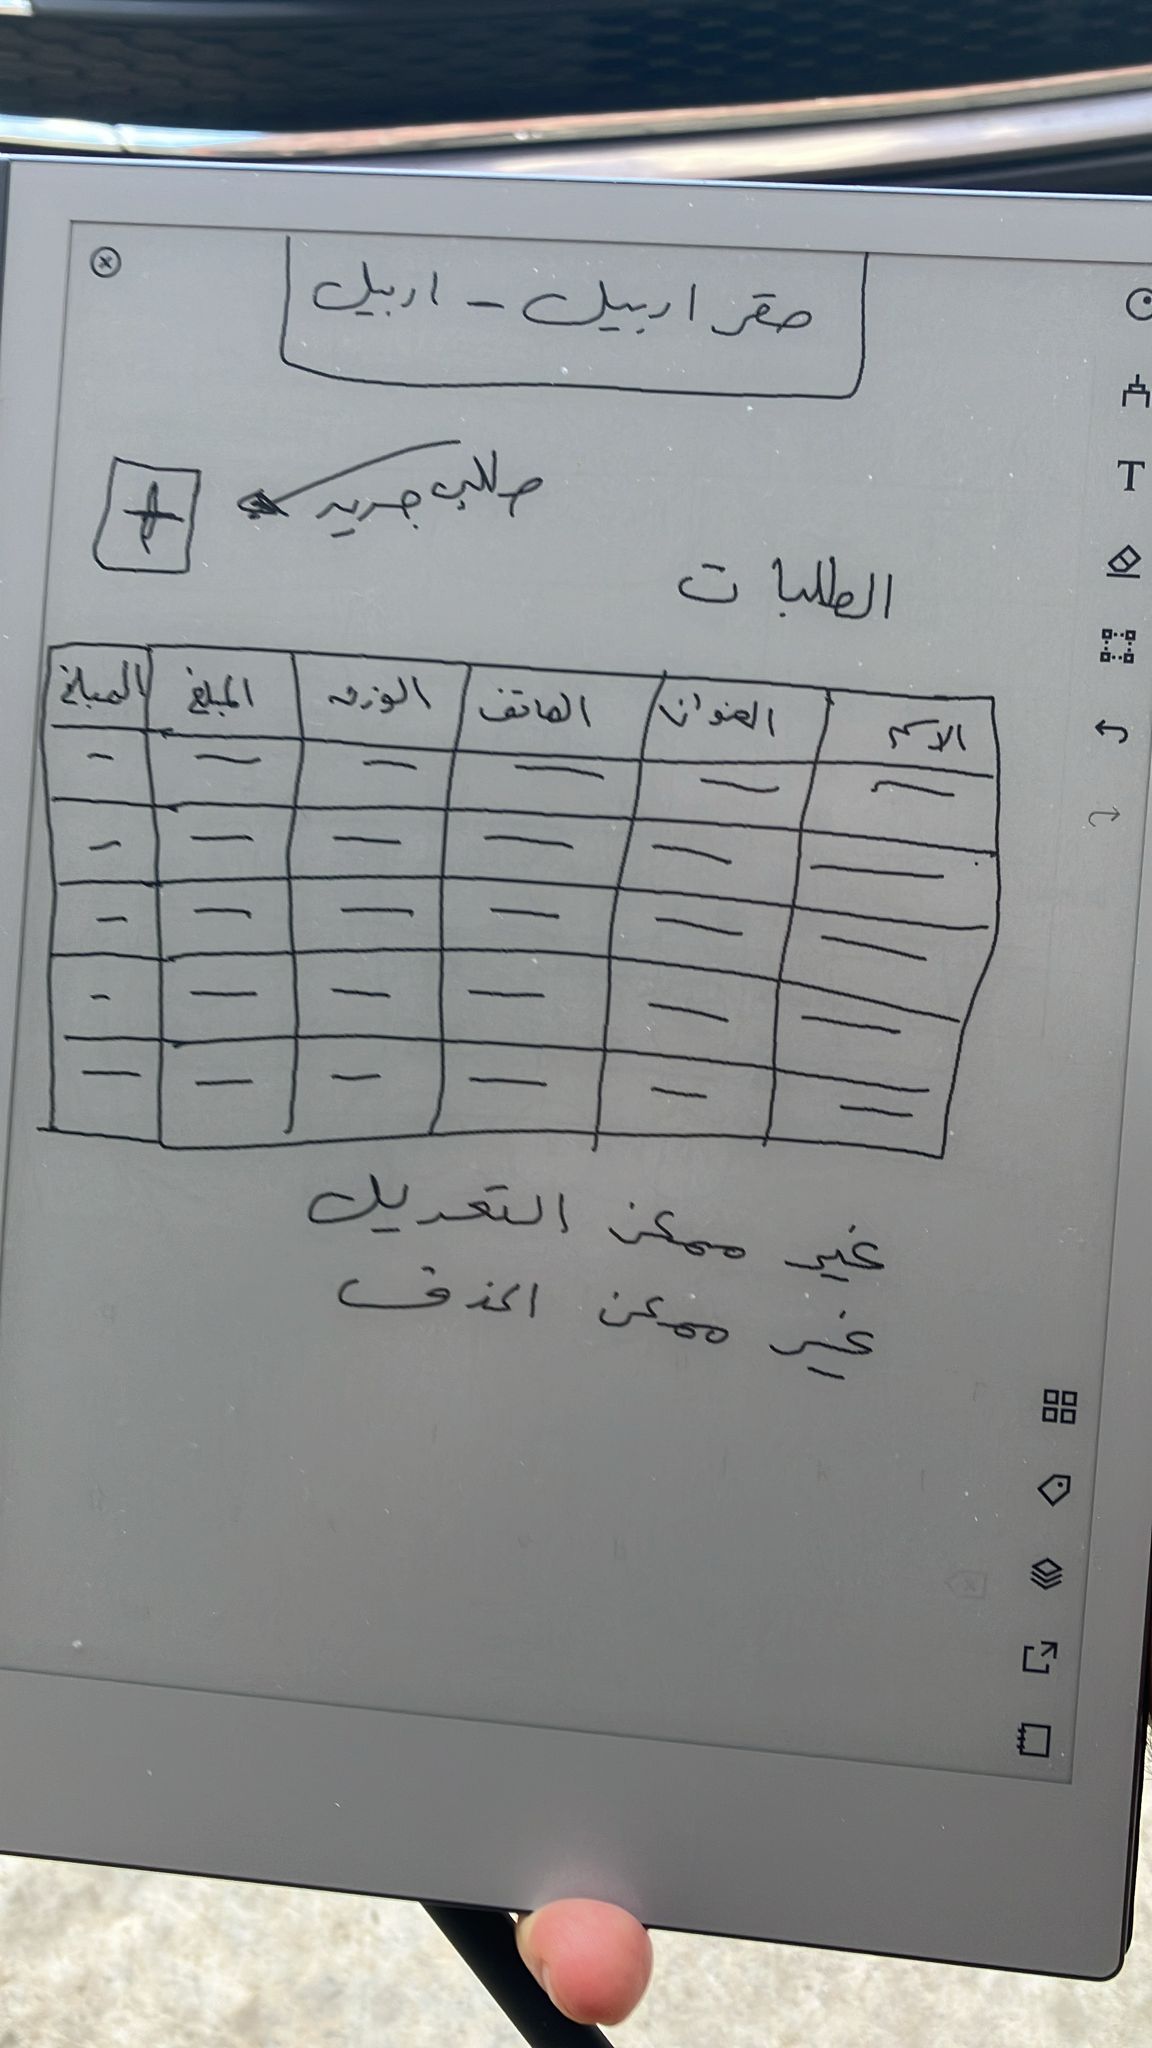 صقر اربيل - اربيل
طلب جديد
+
الطلبات
الاسم العنوان الهاتف الوزن المبلغ المبلغ
غير ممكن التعديل
غير ممكن الحذف
T